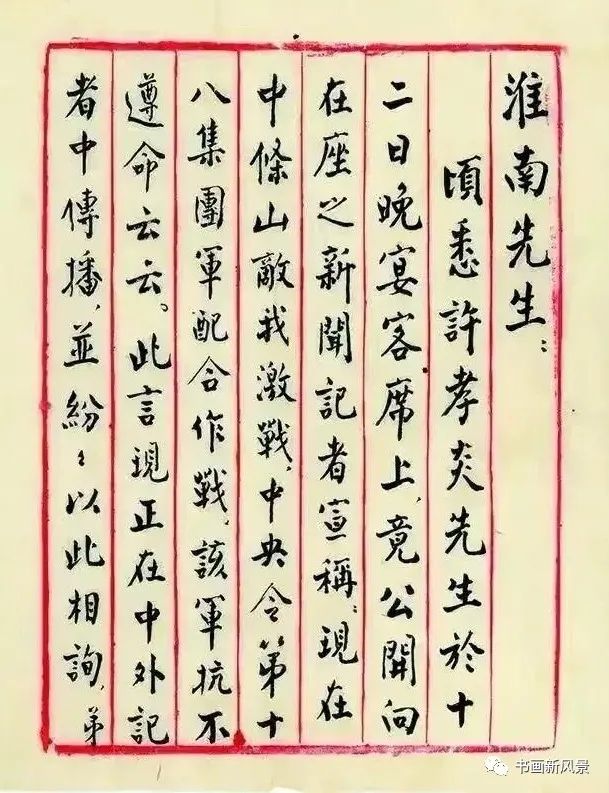 淮南先生：
頃悉許孝炎先生於十
二日晚宴客席上，竟公開向
在座之新聞記者宣稱：現在
中條山敵我激戰，中央令第十
八集團軍配合作戰，該軍抗不
遵命云云。此言現正在中外記
者中傳播，並紛〻以此相詢，弟
书画新风景